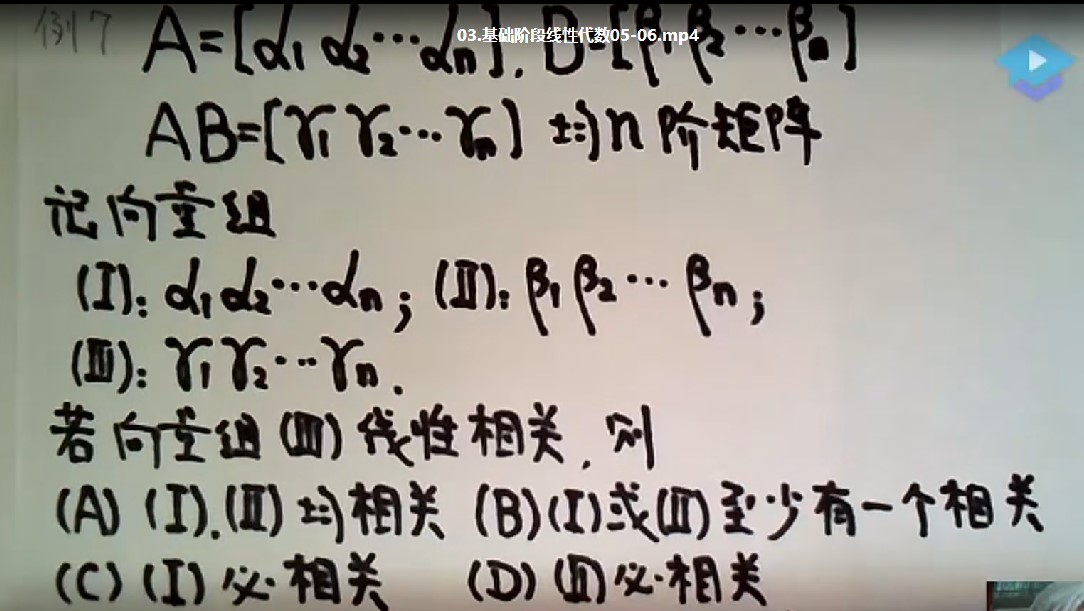 03.基础阶段线性代数05-06.mp4
例7 A=[α₁ α₂⋯αₙ], B=[β₁ β₂⋯βₙ]
AB=[γ₁ γ₂⋯γₙ] 均n阶矩阵
记向量组
(Ⅰ): α₁ α₂⋯αₙ; (Ⅱ): β₁ β₂⋯ βₙ;
(Ⅲ): γ₁ γ₂⋯γₙ.
若向量组(Ⅲ)线性相关, 则
(A) (Ⅰ).(Ⅱ)均相关 (B)(Ⅰ)或(Ⅱ)至少有一个相关
(C) (Ⅰ)必相关 (D) (Ⅱ)必相关